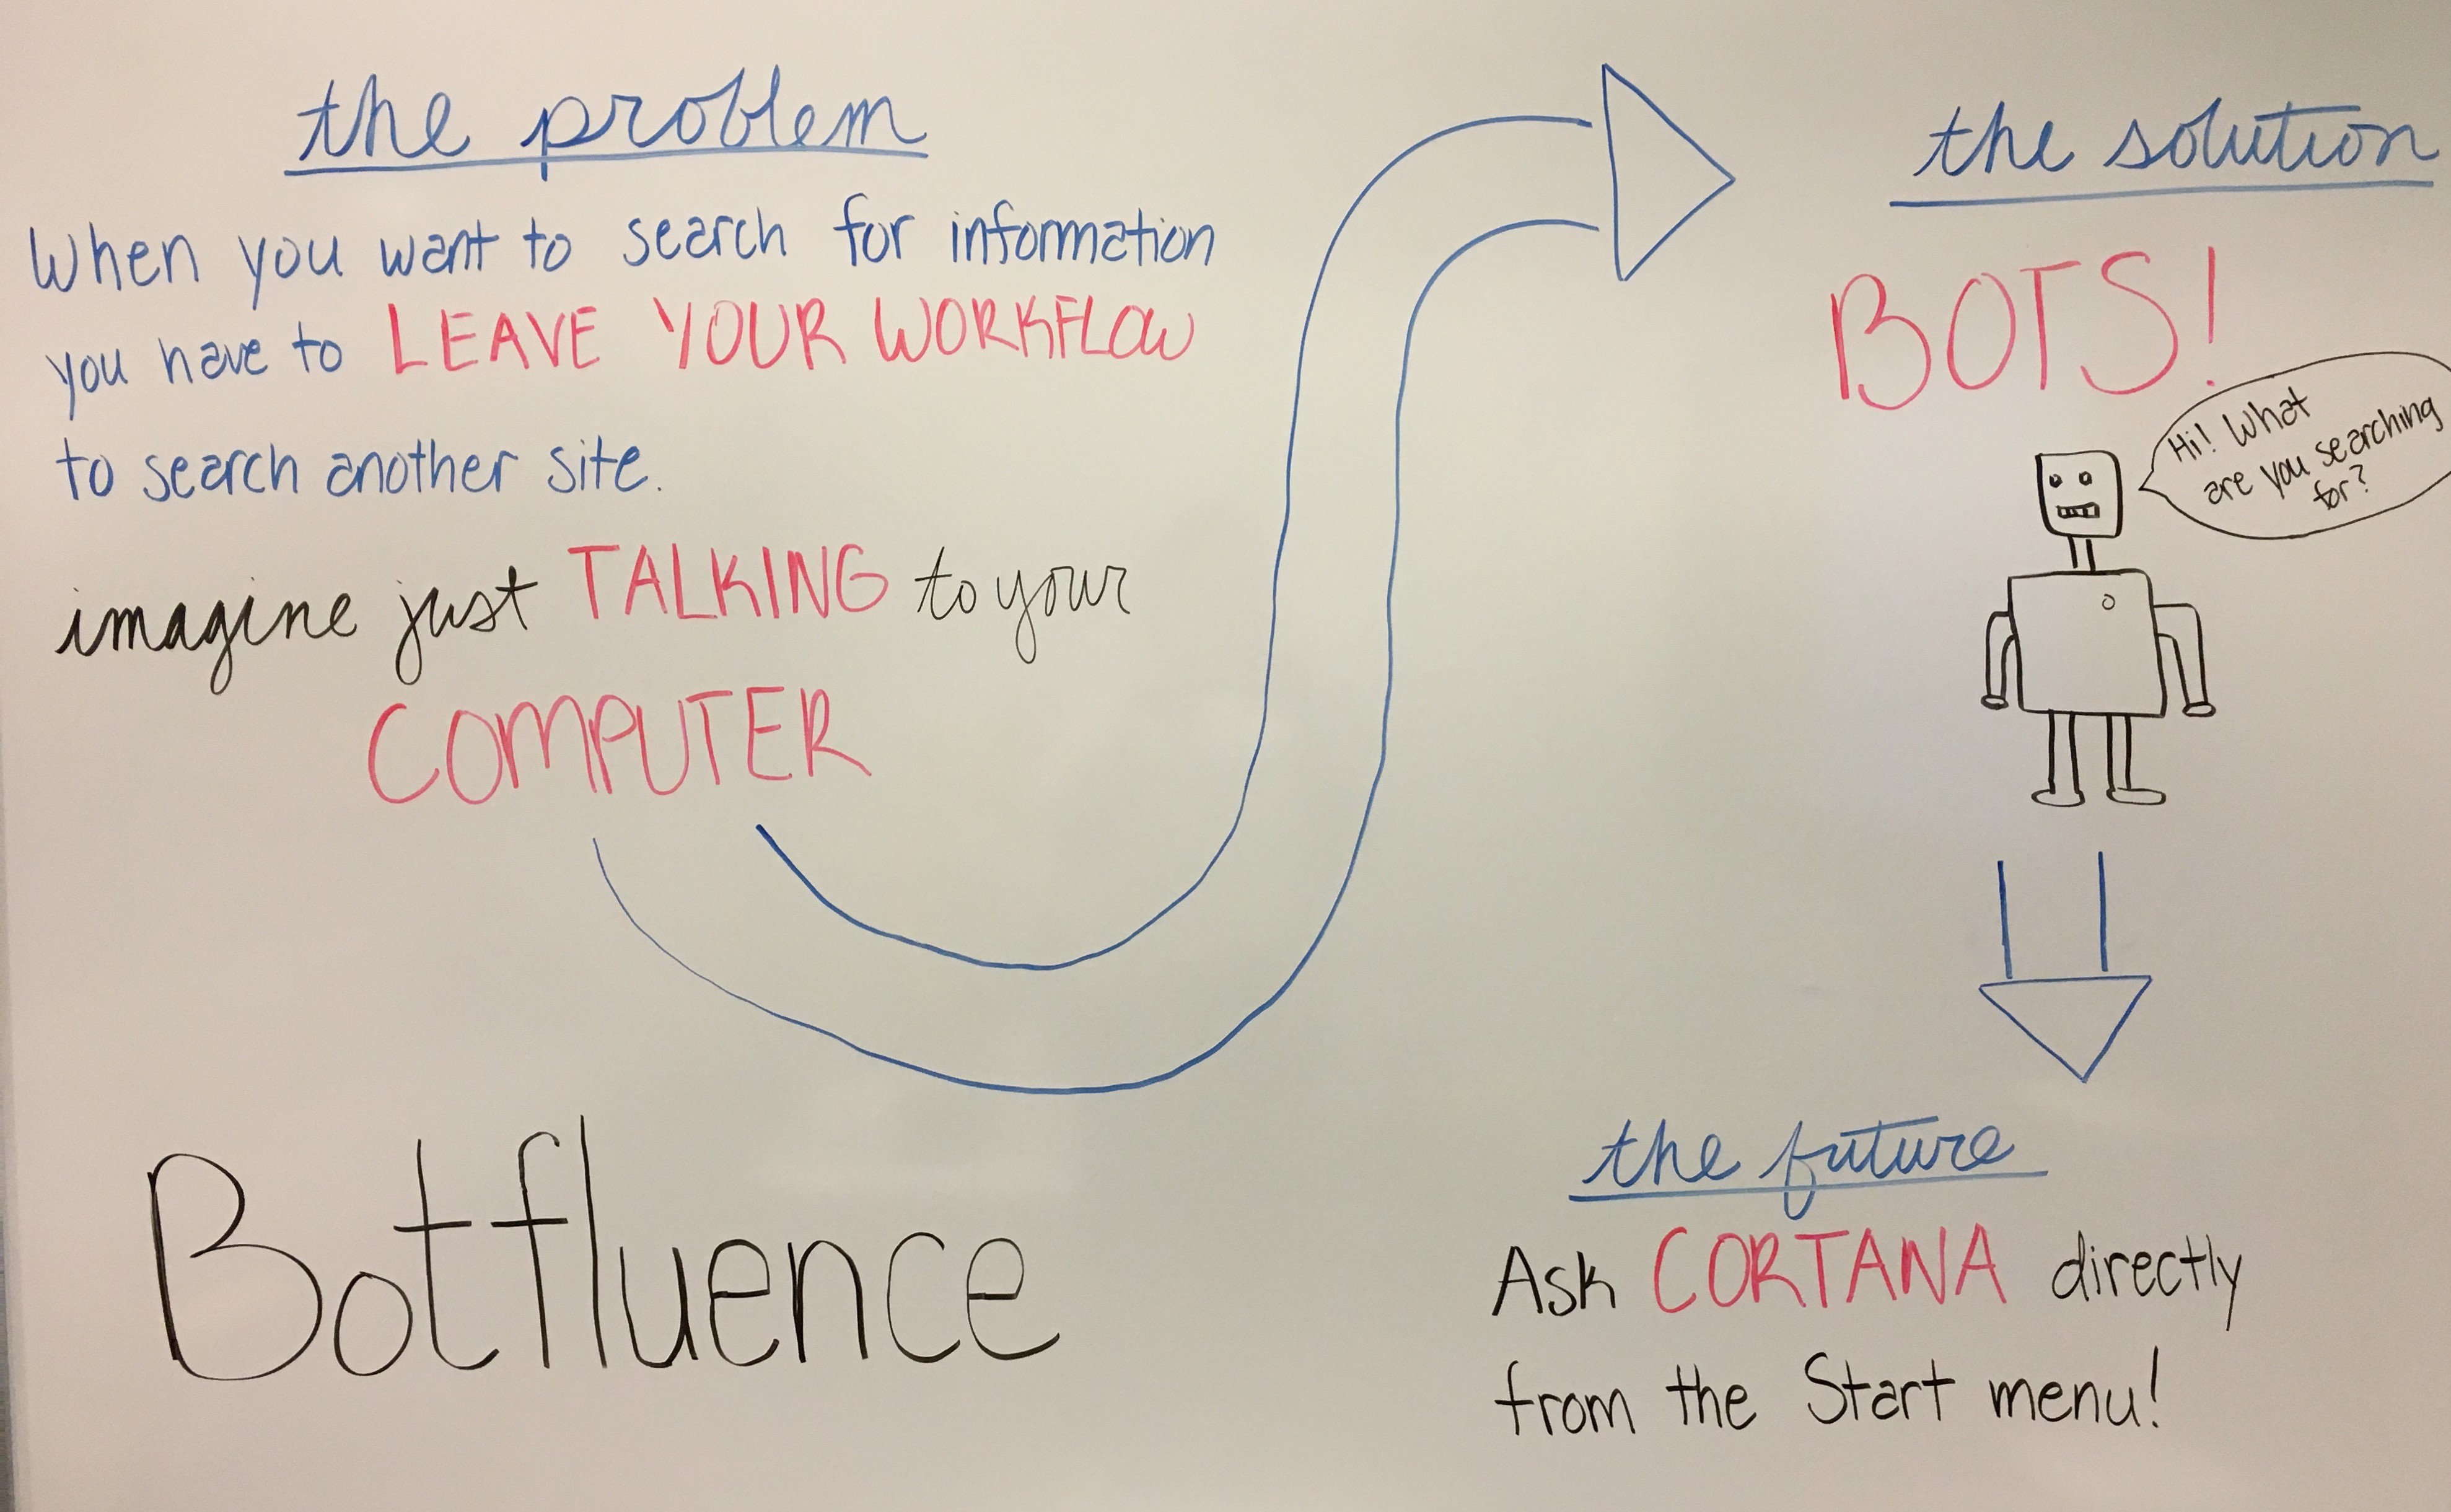 the problem
When you want to search for information
you have to LEAVE YOUR WORKFLOW
to search another site.
imagine just TALKING to your
COMPUTER
the solution
BOTS!
Hi! What
are you searching
for?
the future
Ask CORTANA directly
from the Start menu!
Botfluence